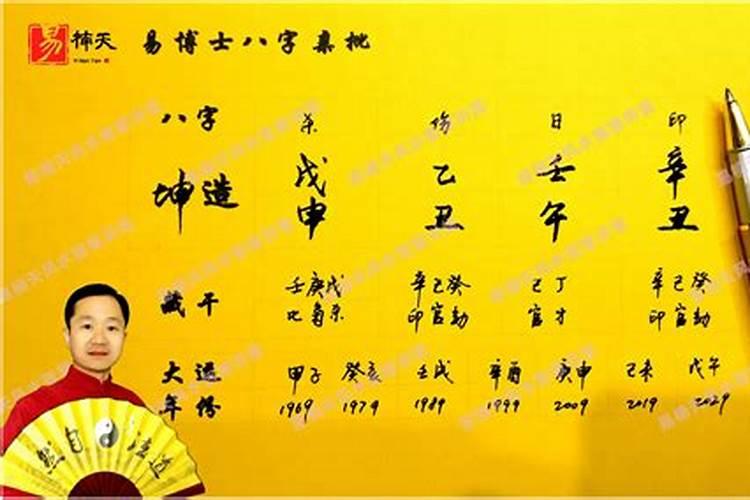 易 楠天 易博士八字真批
八字 杀 伤 日 印
坤造 戊 乙 壬 辛
申 丑 午 丑
藏干 壬庚戊 辛己癸 己丁 辛己癸
比枭杀 印官劫 官才 印官劫
大运 甲子 癸亥 壬戌 辛酉 庚申 己未 戊午
年份 1969 1979 1989 1999 2009 2019 2029
道法自然